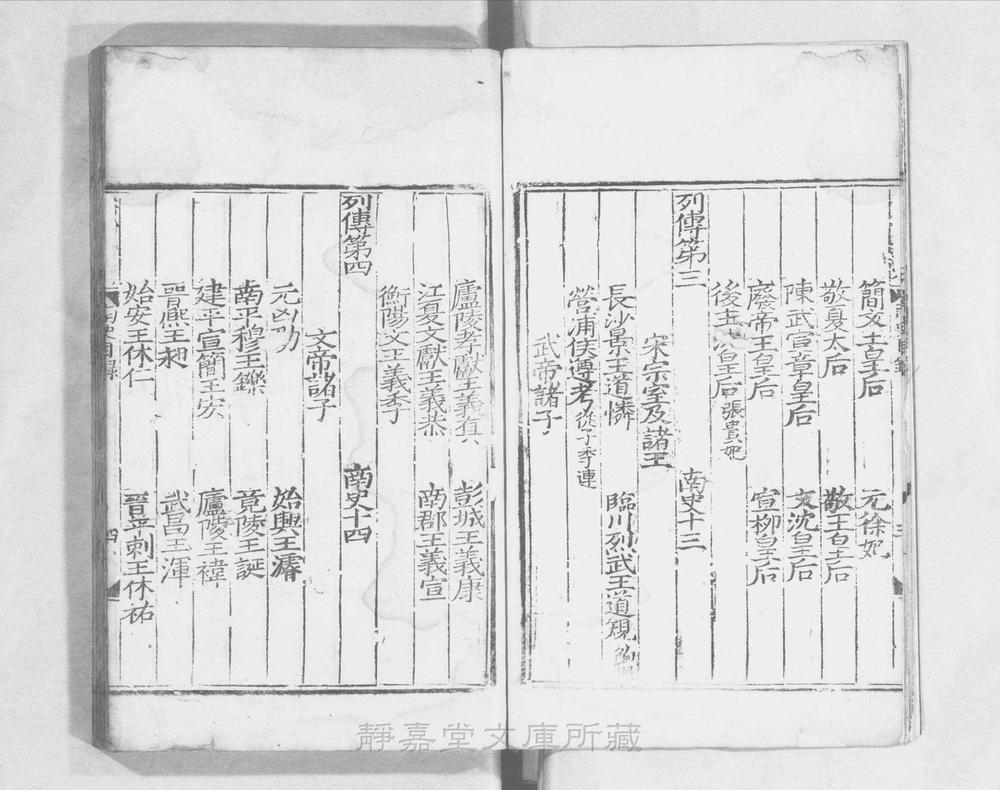 簡文王皇后 元徐妃
敬夏太后 敬王皇后
陳武宣章皇后 文沈皇后
廢帝王皇后 宣柳皇后
後主沈皇后 張貴妃
列傳第三 南史十三
宋宗室及諸王
長沙景王道憐 臨川烈武王道規
營浦侯遵考 從子季連
武帝諸子
廬陵孝獻王義真 彭城王義康
江夏文獻王義恭 南郡王義宣
衡陽文王義季
列傳第四 南史十四
文帝諸子
元凶劭 始興王濬
南平穆王鑠 竟陵王誕
建平宣簡王宏 廬陵王禕
晉熙王昶 武昌王渾
始安王休仁 晉平剌王休祐
南史目錄 四
靜嘉堂文庫所藏